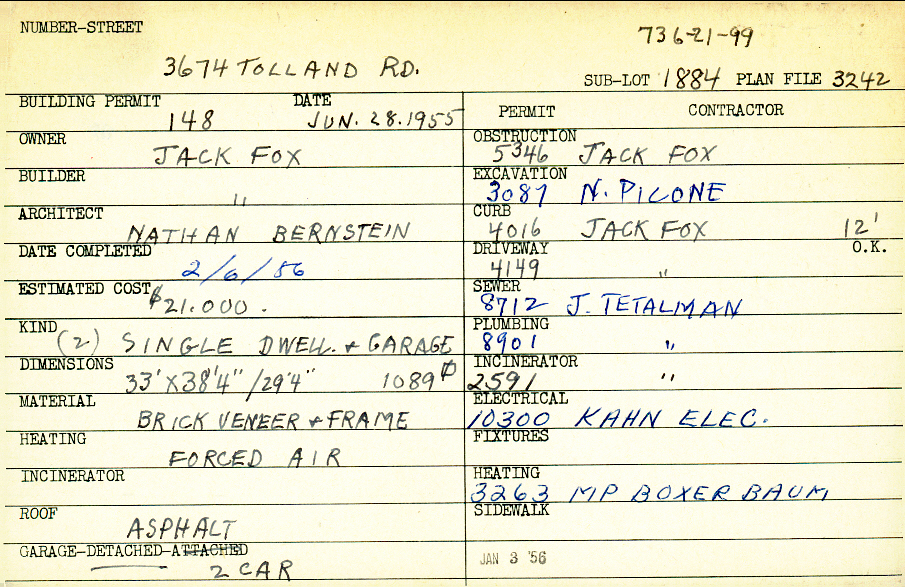 NUMBER-STREET
736-21-99
3674 TOLLAND RD.
SUB-LOT 1884 PLAN FILE 3242
BUILDING PERMIT DATE
148 JUN. 28. 1955
OWNER
JACK FOX
BUILDER
"
ARCHITECT
NATHAN BERNSTEIN
DATE COMPLETED
2/6/56
ESTIMATED COST
$21.000.
KIND
(2) SINGLE DWELL. + GARAGE
DIMENSIONS
33' X 38'4" / 29'4" 1089
MATERIAL
BRICK VENEER + FRAME
HEATING
FORCED AIR
INCINERATOR
ROOF
ASPHALT
GARAGE-DETACHED-ATTACHED
2 CAR
PERMIT CONTRACTOR
OBSTRUCTION
5346 JACK FOX
EXCAVATION
3087 N. PICONE
CURB
4016 JACK FOX 12'
DRIVEWAY O.K.
4149 "
SEWER
8712 J. TETALMAN
PLUMBING
8901 "
INCINERATOR
2591 "
ELECTRICAL
10300 KAHN ELEC.
FIXTURES
HEATING
3263 MP BOXERBAUM
SIDEWALK
JAN 3 '56